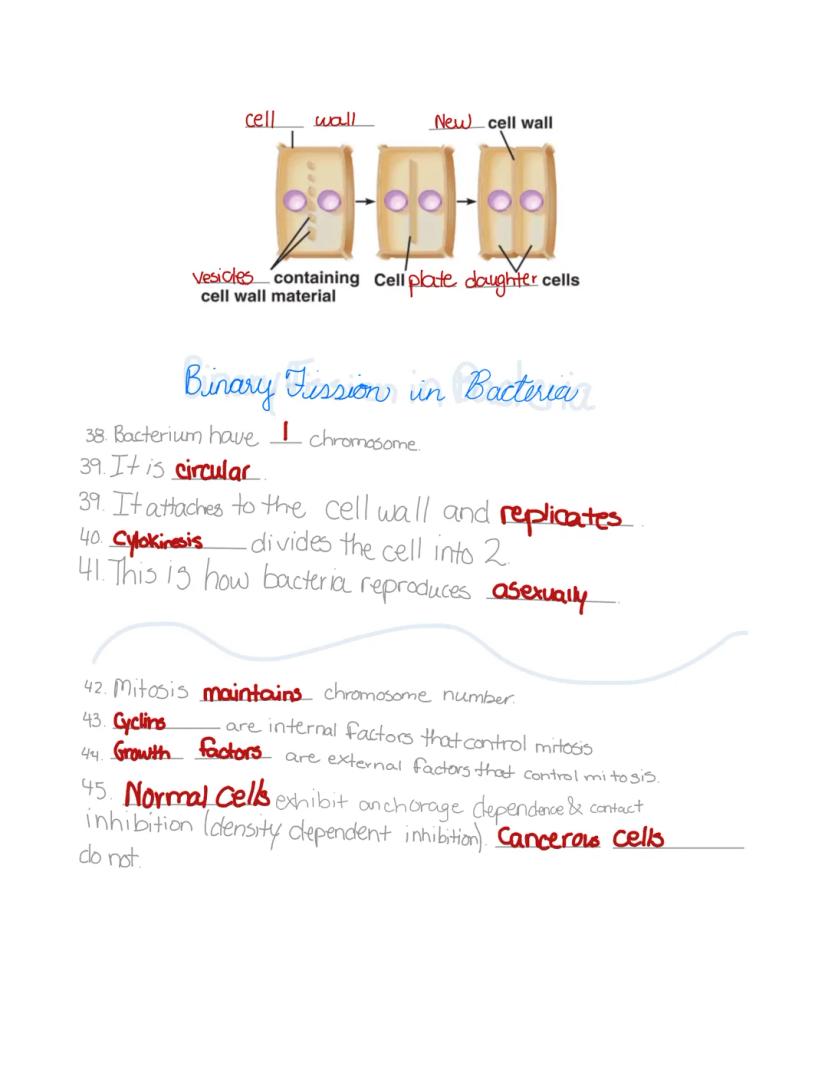 cell wall
New cell wall
vesicles containing
cell wall material
Cell plate daughter cells
Binary Fission in Bacteria
38. Bacterium have 1 chromosome.
39. It is circular.
39. It attaches to the cell wall and replicates.
40. Cytokinesis divides the cell into 2.
41. This is how bacteria reproduces asexually.
42. Mitosis maintains chromosome number.
43. Cyclins are internal factors that control mitosis
44. Growth factors are external factors that control mitosis.
45. Normal Cells exhibit anchorage dependence & contact
inhibition (density dependent inhibition). Cancerous cells
do not.